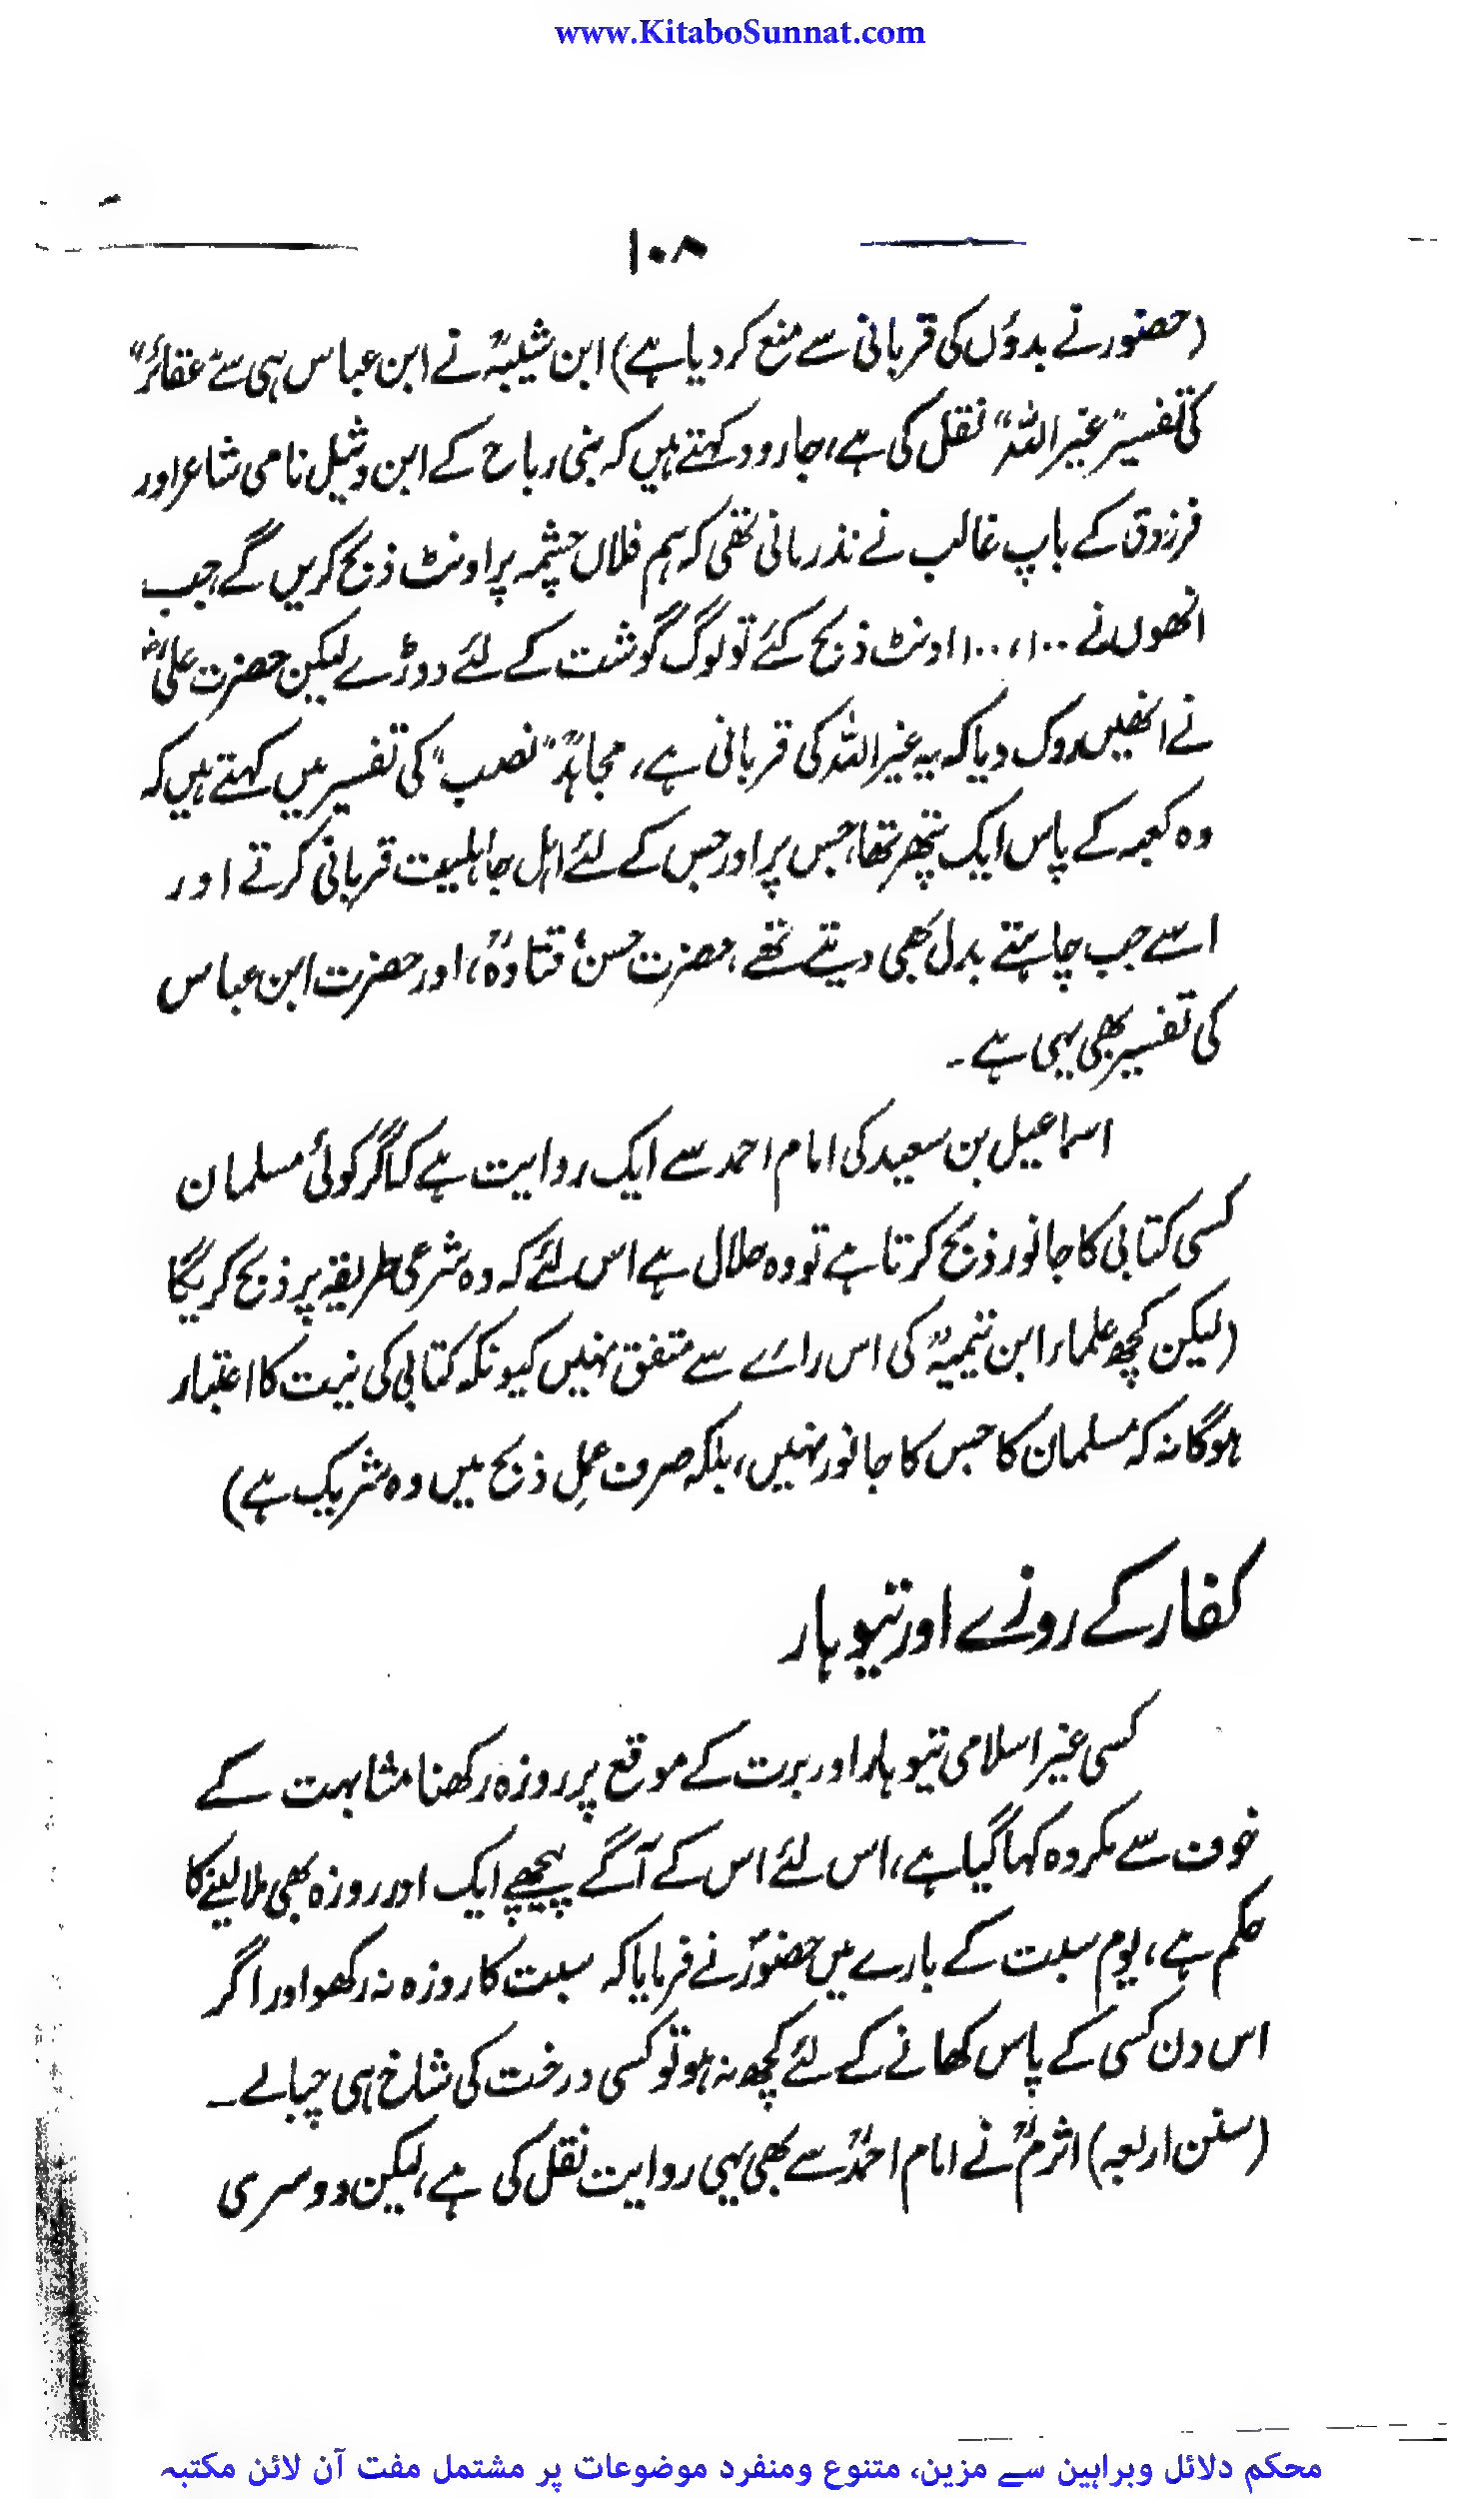 www.KitaboSunnat.com
۱۰۸
(حضور نے بدوؤں کی قربانی سے منع کر دیا ہے) ابن شیبہؒ نے ابن عباس ہی سے "عقائر"
کی تفسیر "غیر اللہ" نقل کی ہے، جارود کہتے ہیں کہ بنی رباح کے ابن وثیل نامی شاعر اور
فرزدق کے باپ غالب نے نذر مانی تھی کہ ہم فلاں چشمہ پر اونٹ ذبح کریں گے جب
انھوں نے ۱۰۰،۱۰۰ اونٹ ذبح کئے تو لوگ گوشت کے لئے دوڑے لیکن حضرت علیؓ
نے انھیں روک دیا کہ یہ غیر اللہ کی قربانی ہے، مجاہدؒ "نصب" کی تفسیر میں کہتے ہیں کہ
وہ کعبہ کے پاس ایک پتھر تھا، جس پر اور جس کے لئے اہل جاہلیت قربانی کرتے اور
اسے جب چاہتے بدل بھی دیتے تھے، حضرت حسنؒ، قتادہؒ، اور حضرت ابن عباس
کی تفسیر بھی یہی ہے۔
اسماعیل بن سعید کی امام احمد سے ایک روایت ہے کہ اگر کوئی مسلمان
کسی کتابی کا جانور ذبح کرتا ہے تو وہ حلال ہے اس لئے کہ وہ شرعی طریقہ پر ذبح کریگا
(لیکن کچھ علماء ابن تیمیہؒ کی اس رائے سے متفق نہیں کیونکہ کتابی کی نیت کا اعتبار
ہوگا نہ کہ مسلمان کا جس کا جانور نہیں، بلکہ صرف عملِ ذبح میں وہ شریک ہے)
کفار کے روزے اور تیوہار
کسی غیر اسلامی تیوہار اور برت کے موقع پر روزہ رکھنا مشابہت کے
خوف سے مکروہ کہا گیا ہے، اس لئے اس کے آگے پیچھے ایک اور روزہ بھی ملا لینے کا
حکم ہے، یوم سبت کے بارے میں حضورؐ نے فرمایا کہ سبت کا روزہ نہ رکھو اور اگر
اس دن کسی کے پاس کھانے کے لئے کچھ نہ ہو تو کسی درخت کی شاخ ہی چبالے۔
(سنن اربعہ) اثرمؒ نے امام احمدؒ سے بھی یہی روایت نقل کی ہے، لیکن دوسری
محکم دلائل وبراہین سے مزین، متنوع ومنفرد موضوعات پر مشتمل مفت آن لائن مکتبہ